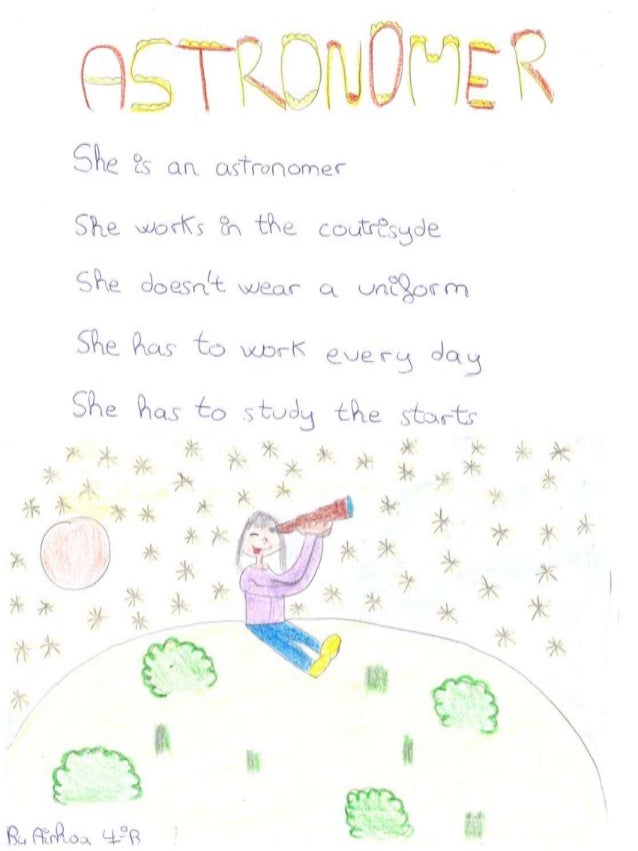 ASTRONOMER
She is an astronomer
She works in the coutrisyde
She doesn't wear a uniform
She has to work every day
She has to study the starts
By Ainhoa 4ºB